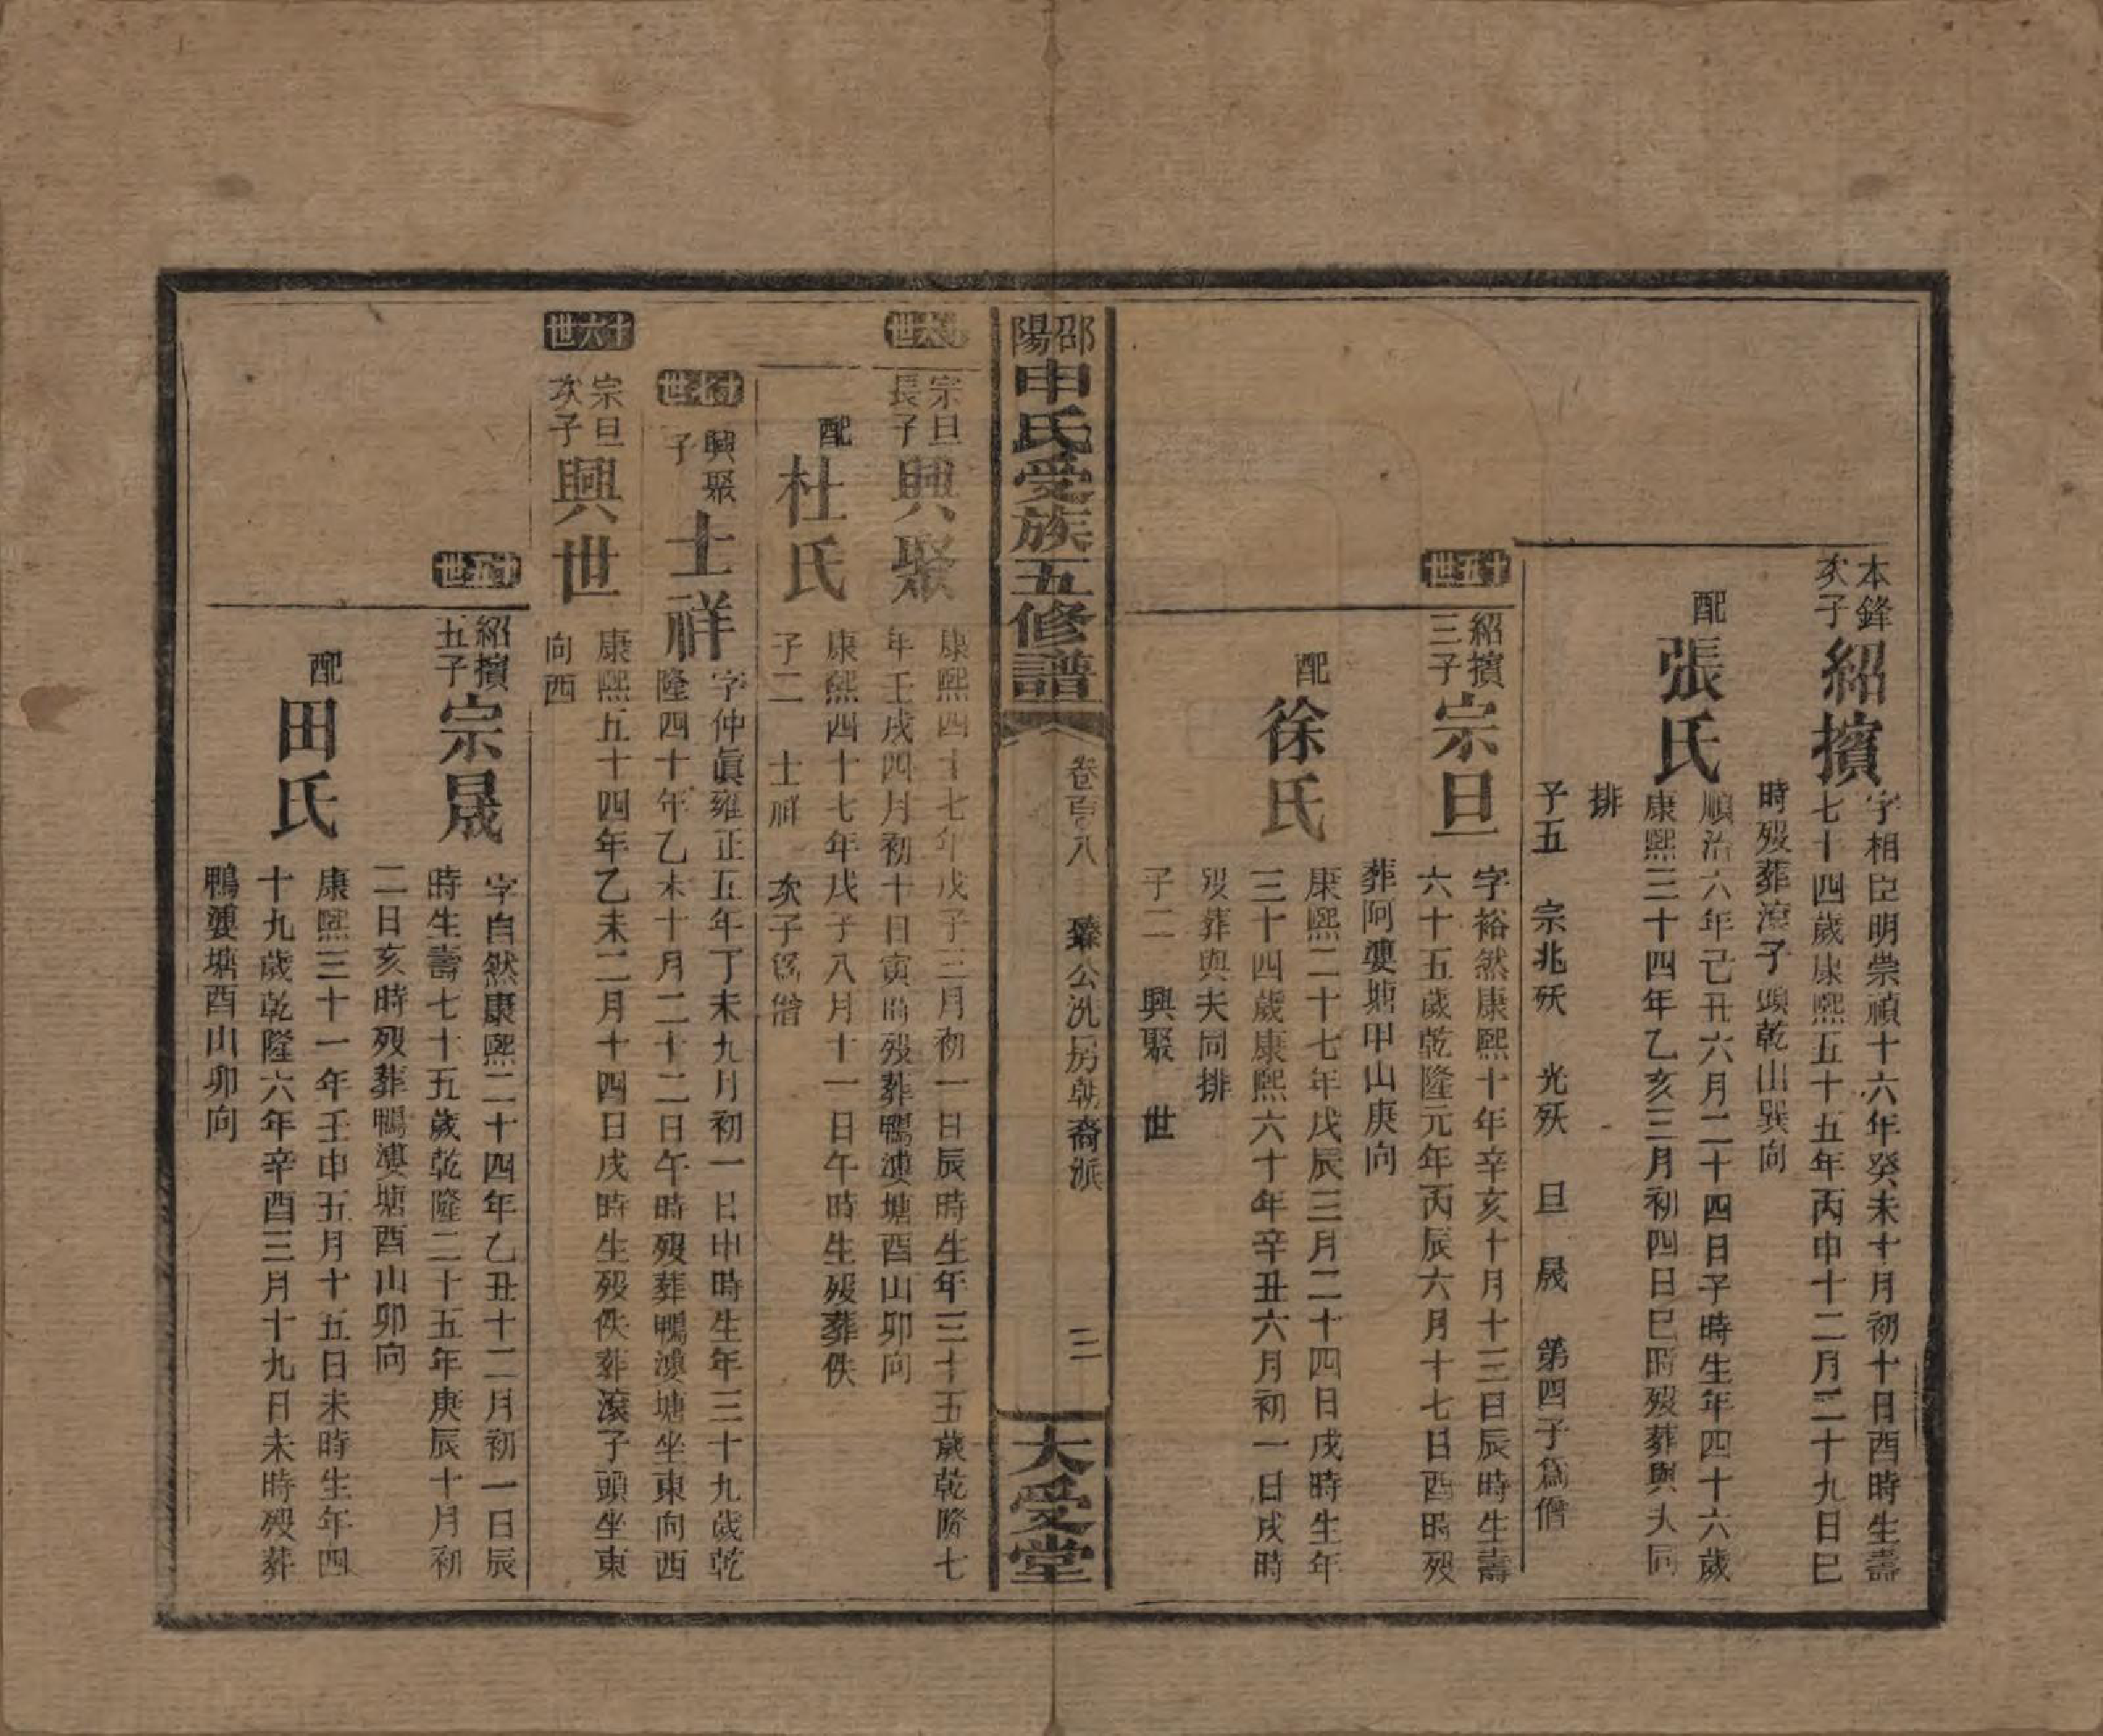 本鋒
次子
紹擯
字相臣明崇禎十六年癸未十月初十日酉時生壽
七十四歲康熙五十五年丙申十二月二十九日巳
時歿葬滾子頭乾山巽向
配
張氏
順治六年己丑六月二十四日子時生年四十六歲
康熙三十四年乙亥三月初四日巳時歿葬與夫同
排
子五 宗兆殀 光殀 旦 晟 第四子爲僧
十五世
紹擯
三子
宗旦
字裕然康熙十年辛亥十月十三日辰時生壽
六十五歲乾隆元年丙辰六月十七日酉時歿
葬阿婆塘甲山庚向
配
徐氏
康熙二十七年戊辰三月二十四日戌時生年
三十四歲康熙六十年辛丑六月初一日戌時
歿葬與夫同排
子二 興聚 世
邵陽申氏受族五修譜
卷百八 臻公沇房朝裔派 三
大受堂
十六世
宗旦
長子
興聚
康熙四十七年戊子三月初一日辰時生年三十五歲乾隆七
年壬戌四月初十日寅時歿葬鴨婆塘酉山卯向
配
杜氏
康熙四十七年戊子八月十一日午時生歿葬佚
子二 士祥 次子爲僧
十七世
興聚
子
士祥
字仲眞雍正五年丁未九月初一日申時生年三十九歲乾
隆四十年乙未十月二十二日午時歿葬鴨婆塘坐東向西
十六世
宗旦
次子
興世
康熙五十四年乙未二月十四日戌時生歿佚葬滾子頭坐東
向西
十五世
紹擯
五子
宗晟
字自然康熙二十四年乙丑十二月初一日辰
時生壽七十五歲乾隆二十五年庚辰十月初
二日亥時歿葬鴨婆塘酉山卯向
配
田氏
康熙三十一年壬申五月十五日未時生年四
十九歲乾隆六年辛酉三月十九日未時歿葬
鴨婆塘酉山卯向